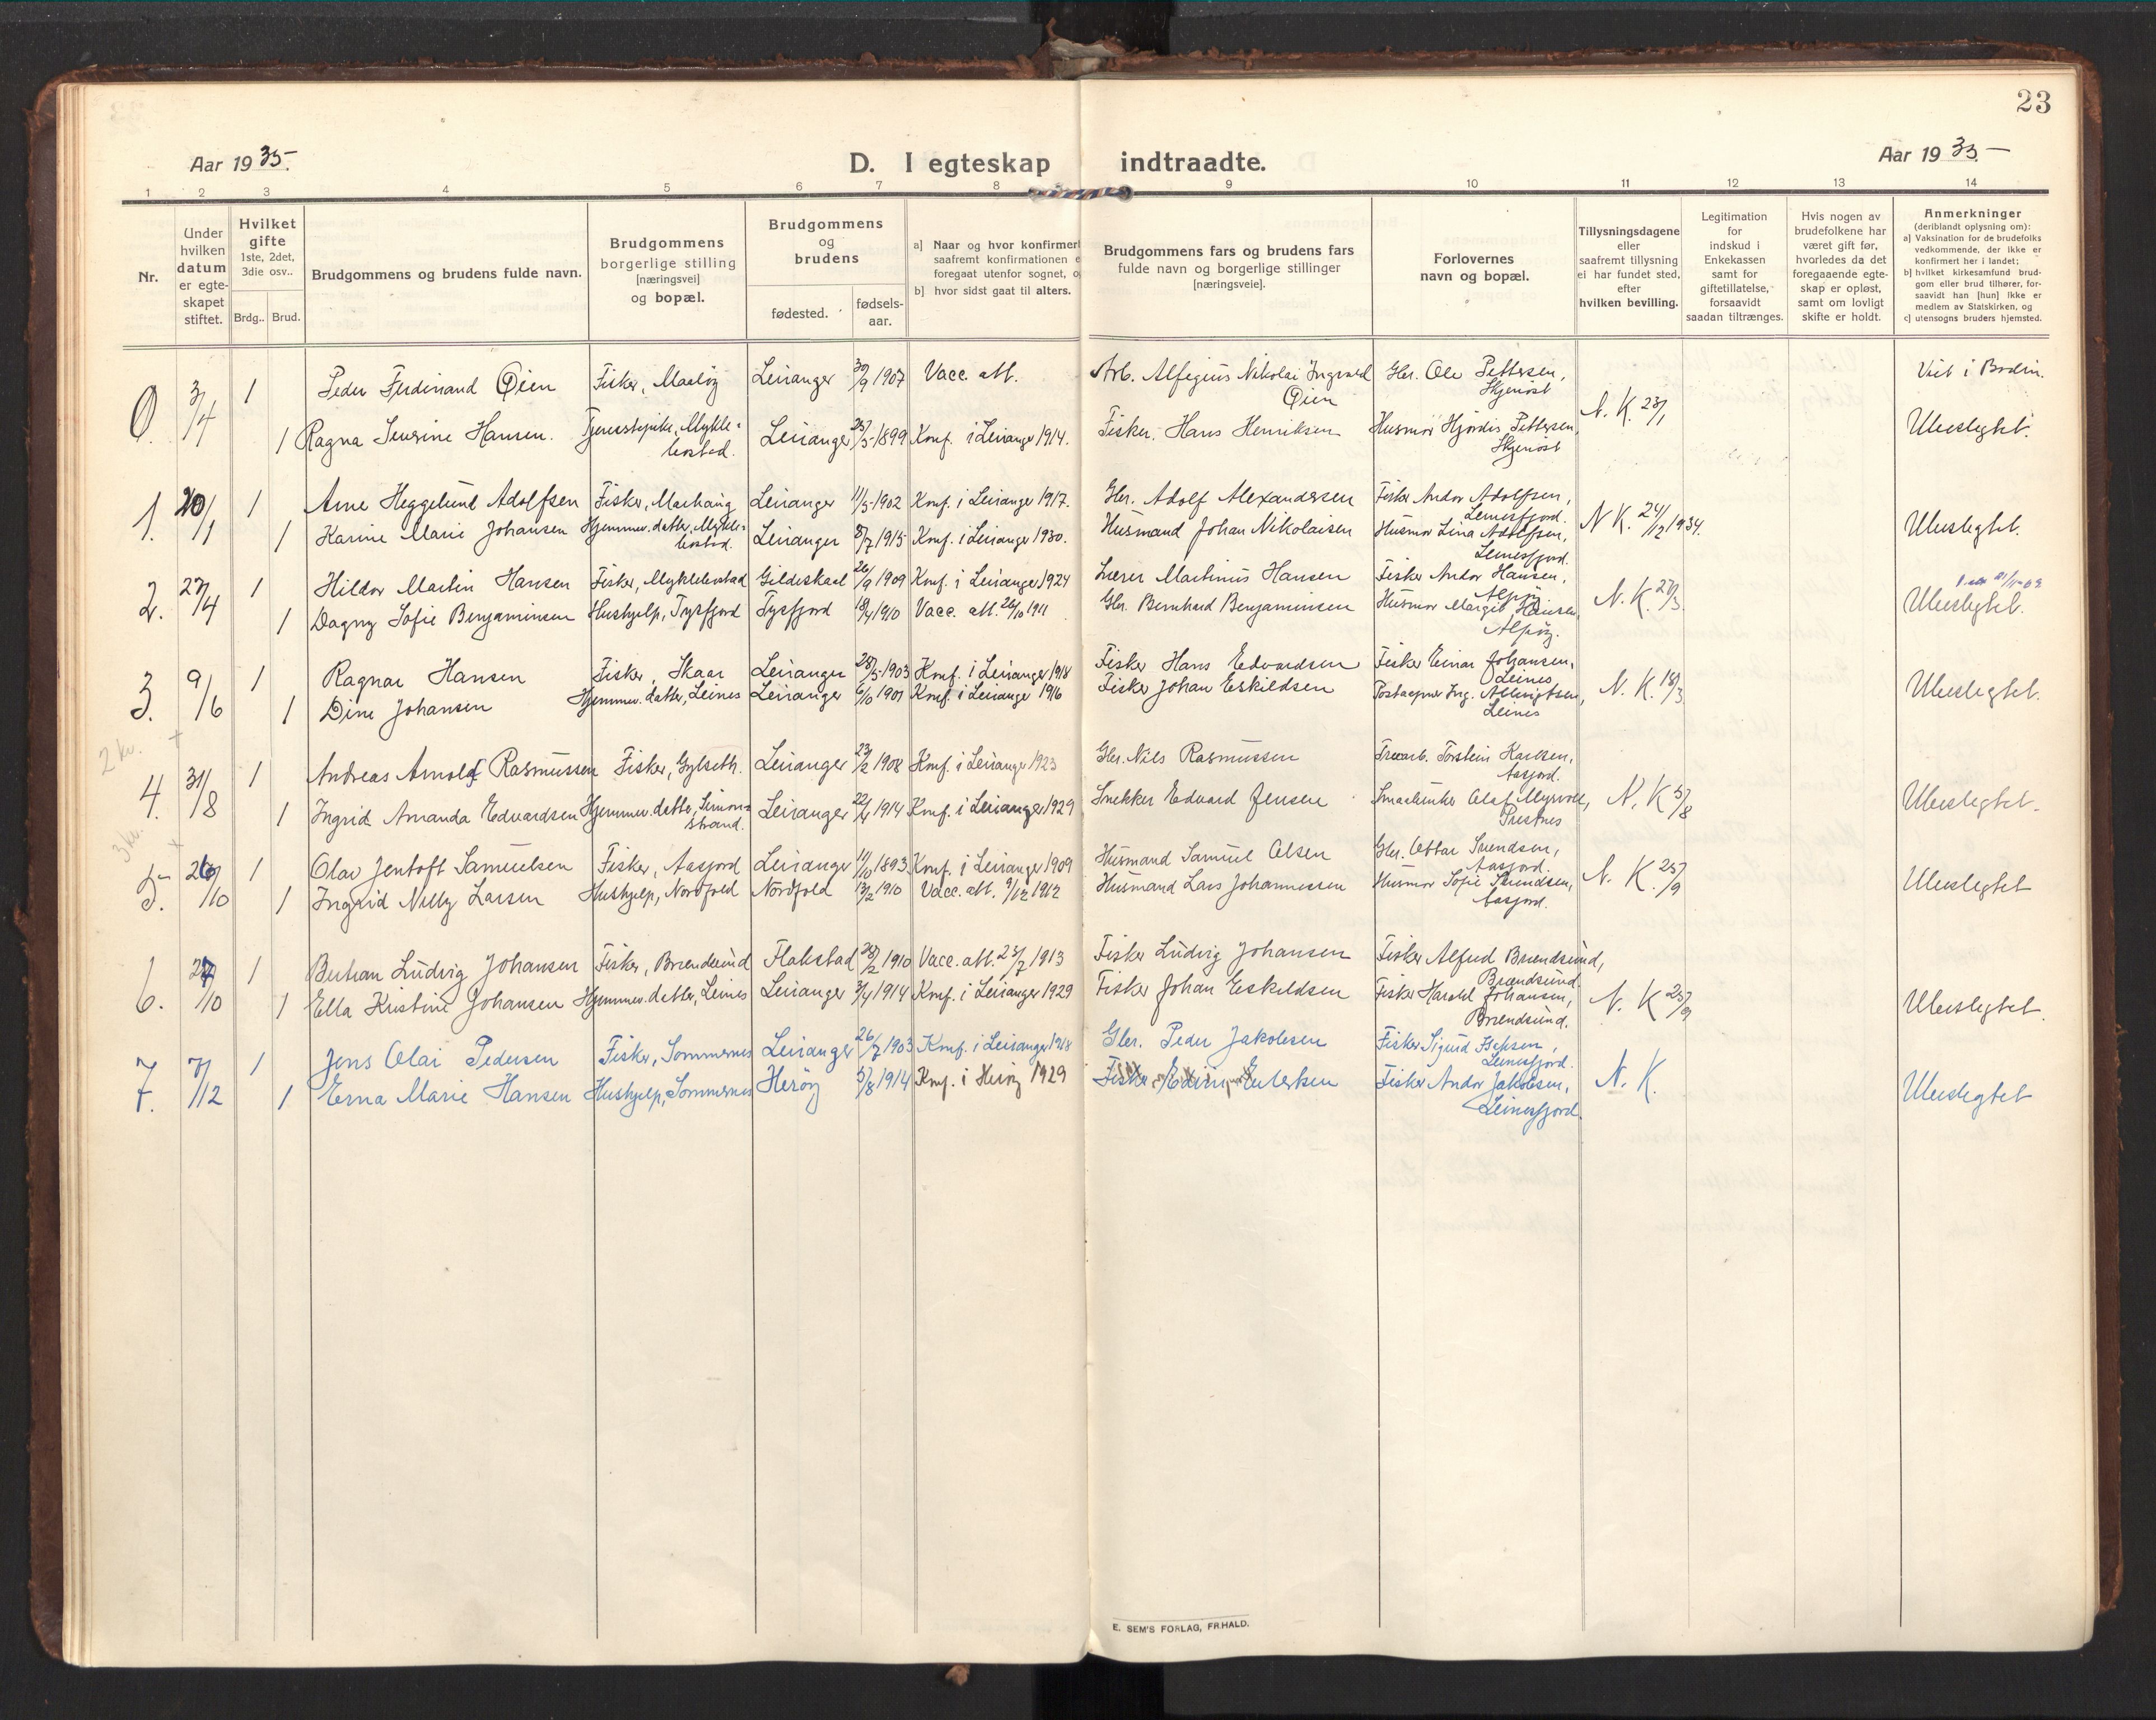 23
Aar 1935.
D. I egteskap indtraadte.
Aar 1935.
1 2 3 4 5 6 7 8 9 10 11 12 13 14
Nr.
Under hvilken datum er egte- skapet stiftet.
Hvilket gifte 1ste, 2det, 3die osv..
Brdg.. Brud.
Brudgommens og brudens fulde navn.
Brudgommens borgerlige stilling [næringsvei] og bopæl.
Brudgommens og brudens
fødested. fødsels- aar.
a] Naar og hvor konfirmert saafremt konfirmationen e foregaat utenfor sognet, o
b] hvor sidst gaat til alters.
Brudgommens fars og brudens fars fulde navn og borgerlige stillinger [næringsveie].
Forlovernes navn og bopæl.
Tillysningsdagene eller saafremt tillysning ei har fundet sted, efter hvilken bevilling.
Legitimation for indskud i Enkekassen samt for giftetillatelse, forsaavidt saadan tiltrænges.
Hvis nogen av brudefolkene har været gift før, hvorledes da det foregaaende egte- skap er opløst, samt om lovligt skifte er holdt.
Anmerkninger (deriblandt oplysning om):
a] Vaksination for de brudefolks vedkommende, der ikke er konfirmert her i landet;
b] hvilket kirkesamfund brud- gom eller brud tilhører, for- saavidt han [hun] ikke er medlem av Statskirken, og
c] utensogns bruders hjemsted.
0. 3/4 1 Peder Ferdinand Øien Fisker, Maaløy Leiranger 30/9 1907 Vacc. att. Arb. Alfegius Nikolai Ingvard Øien Gbr. Ole Pettersen, Skjenöst N. K. 23/1 Viet i Bodin.
1 Ragna Severine Hansen. Tjenestepike, Mykle- bostad. Leiranger 23/5-1899 Konf. i Leiranger 1914. Fisker. Hans Henriksen Husmor Hjördis Pettersen, Skjenöst Ubeslegtet.
1. 20/1 1 Arne Heggelund Adolfsen Fisker, Marhaug Leiranger 11/5-1902 Konf. i Leiranger 1917. Gbr. Adolf Alexandersen Fisker Andor Adolfsen, Leinesfjord. N K. 24/12 1934.
1 Karine Marie Johansen Hjemmev. datter, Mykle- bostad. Leiranger 8/7 1915 Konf. i Leiranger 1930. Husmand Johan Nikolaisen Husmor Lina Adolfsen, Leinesfjord. Ubeslegtet.
2. 27/4 1 Hildor Martin Hansen Fisker, Myklebostad Gildeskaal 26/9 1909 Konf. i Leiranger 1924 Lærer Martinus Hansen Fisker Andor Hansen, Alpöy N. K. 27/3
1 Dagny Sofie Benjaminsen Hushjelp, Tysfjord Tysfjord 18/4 1910 Vacc. att. 26/10 1911 Gbr. Bernhard Benjaminsen Husmor Margit Hansen, Alpöy. Ubeslegtet.
3. 9/6 1 Ragnar Hansen Fisker, Skaar Leiranger 28/5-1903 Konf. i Leiranger 1918 Fisker Hans Edvardsen Fisker Einar Johansen, Leines N. K. 18/3
1 Dine Johansen Hjemmev. datter, Leines Leiranger 6/10 1901 Konf. i Leiranger 1916 Fisker Johan Eskildsen Postaapner Ing. Albrigtsen, Leines Ubeslegtet.
2 kv.
4. 31/8 1 Andreas Arnold Rasmussen Fisker, Gylseth. Leiranger 23/2 1908 Konf. i Leiranger 1923 Gbr. Nils Rasmussen Torstein Karlsen, Aasjord. N. K 5/8
1 Ingrid Amanda Edvardsen Hjemmev. datter, Simon- strand. Leiranger 22/4 1914 Konf. i Leiranger 1929 Snekker Edvard Jensen Smaabruker Olaf Myrvold, Prestnes Ubeslegtet.
3 kv.
5. 26/10 1 Olav Jentoft Samuelsen Fisker, Aasjord Leiranger 11/10 1893 Konf. i Leiranger 1909 Husmand Samuel Olsen Gbr. Ottar Svendsen, Aasjord. N. K. 25/9
1 Ingrid Nelly Larsen Hushjelp, Nordfold Nordfold 13/2 1910 Vacc. att. 9/12 1912 Husmand Lars Johannessen Husmor Sofie Svendsen, Aasjord. Ubeslegtet
6. 27/10 1 Berhan Ludvig Johansen Fisker, Brændsund Flakstad 28/2 1910 Vacc. att. 23/7 1913 Fisker Ludvig Johansen Fisker Alfred Brændsund, Brændsund. N. K 25/9
1 Ella Kristine Johansen Hjemmev. datter, Leines Leiranger 3/4 1914 Konf. i Leiranger 1929 Fisker Johan Eskildsen Fisker Harald Johansen, Brændsund. Ubeslegtet.
7. 7/12 1 Jens Olai Pedersen Fisker, Sommernes Leiranger 26/7 1903 Konf. i Leiranger 1918 Gbr. Peder Jakobsen Fisker Sigurd Jepsen, Leinesfjord. N. K.
1 Erna Marie Hansen Hushjelp, Sommernes Heröy 5/8 1914 Konf. i Heröy 1929 Fisker Edvin Fisker Andor Jakobsen, Leinesfjord. Ubeslegtet
E. SEM'S FORLAG, FR.HALD.